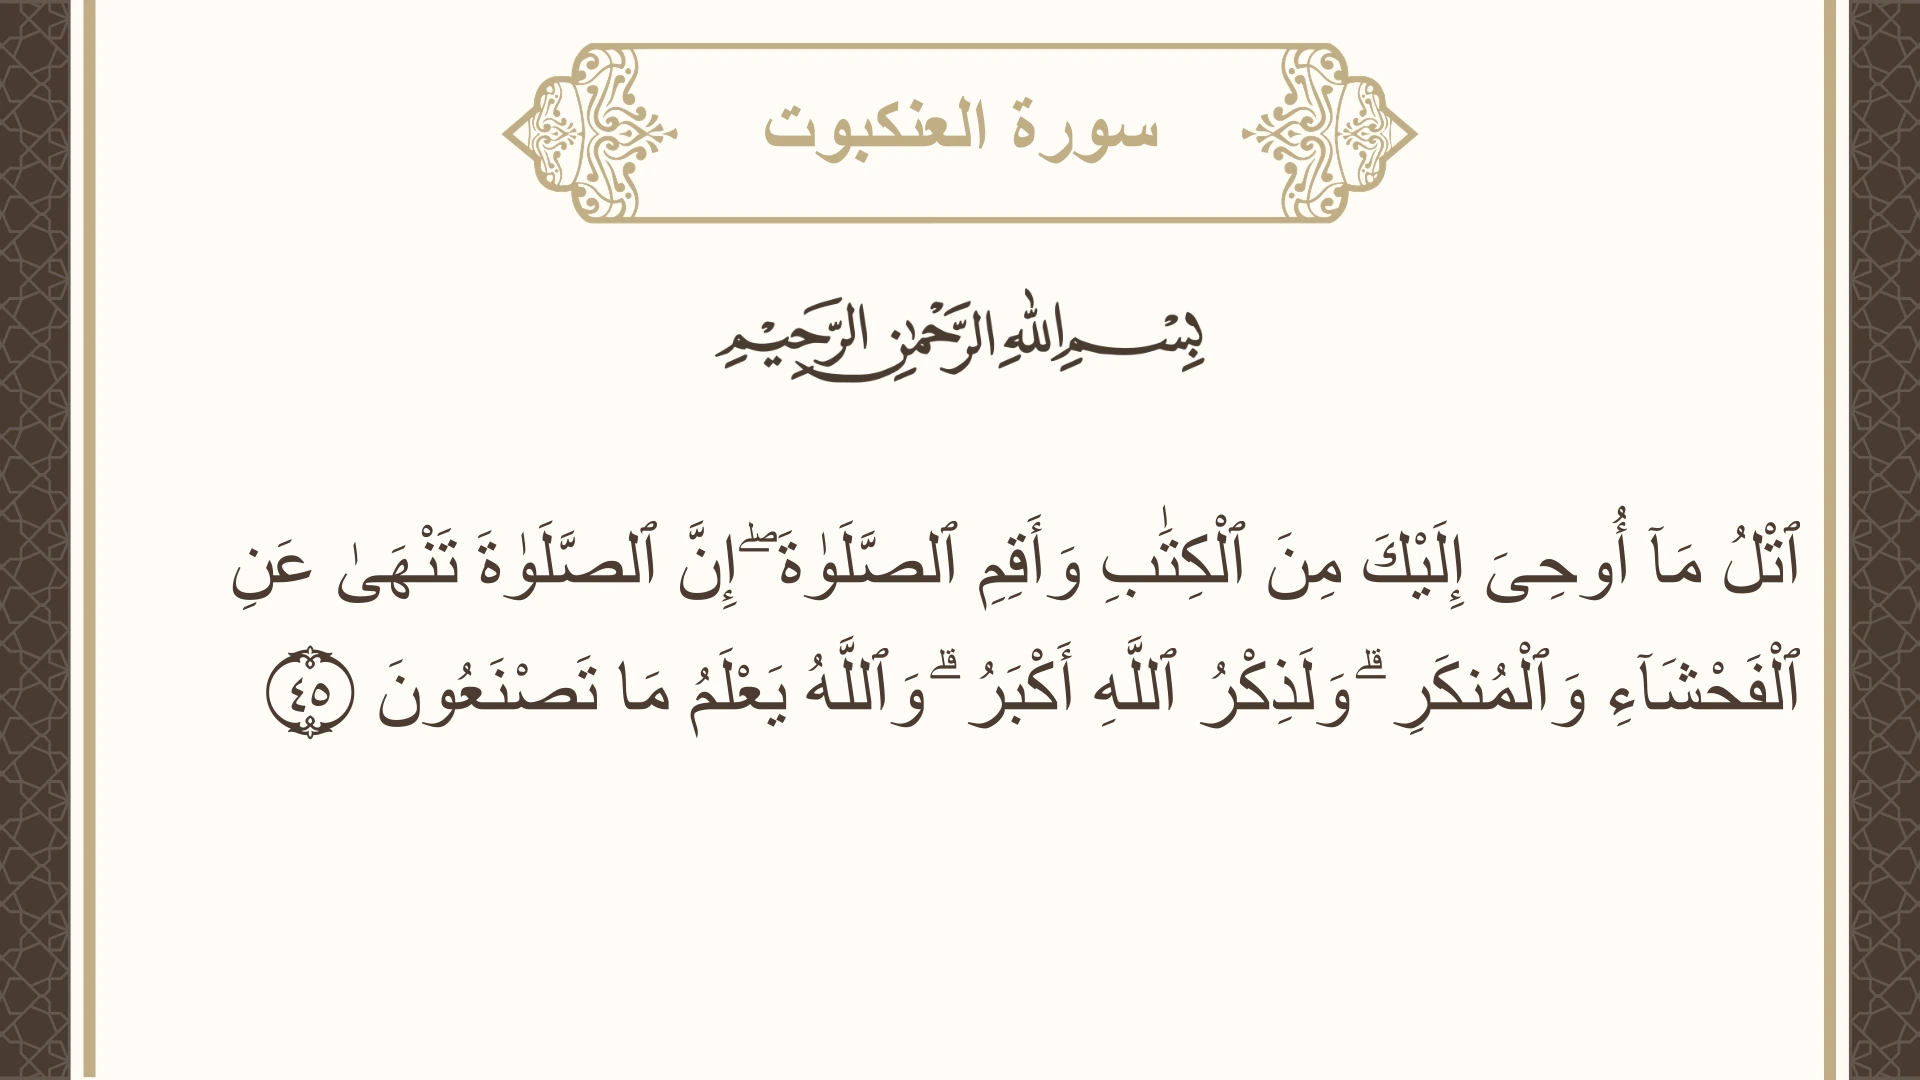 سورة العنكبوت
بِسْمِ اللهِ الرَّحْمٰنِ الرَّحِيْمِ
ٱتْلُ مَآ أُوحِىَ إِلَيْكَ مِنَ ٱلْكِتَٰبِ وَأَقِمِ ٱلصَّلَوٰةَ ۖ إِنَّ ٱلصَّلَوٰةَ تَنْهَىٰ عَنِ
ٱلْفَحْشَآءِ وَٱلْمُنكَرِ ۗ وَلَذِكْرُ ٱللَّهِ أَكْبَرُ ۗ وَٱللَّهُ يَعْلَمُ مَا تَصْنَعُونَ ٤٥